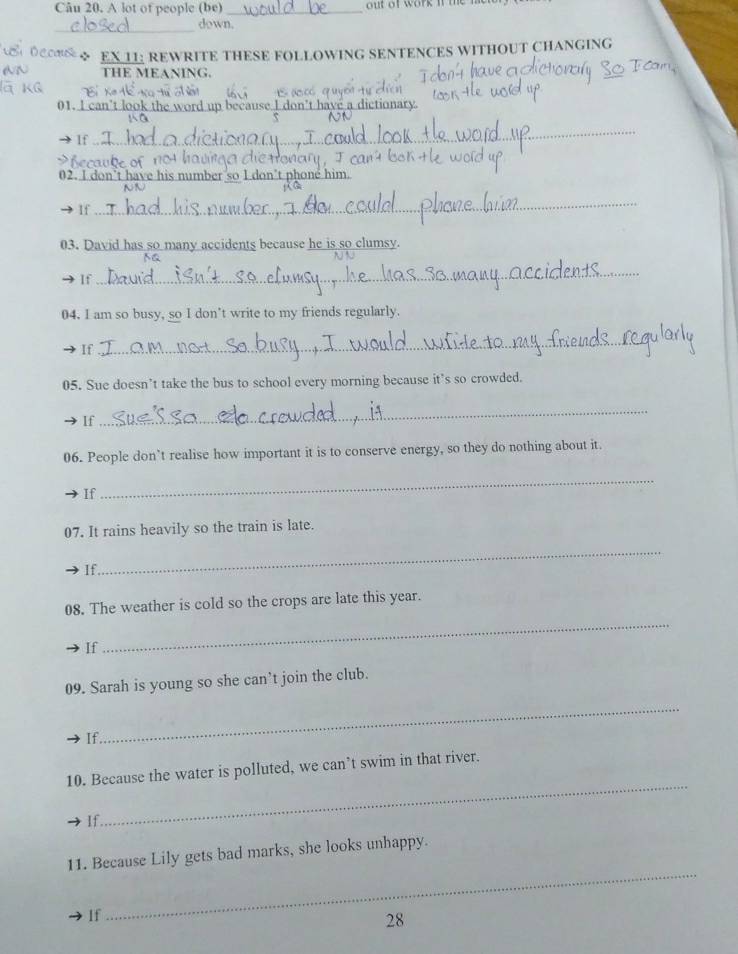 Câu 20. A lot of people (be) would be out of work if the
closed down.
❖ EX 11: REWRITE THESE FOLLOWING SENTENCES WITHOUT CHANGING
THE MEANING.
I don't have a dictionary so I can't
look the word up
NN
là KQ
01. I can't look the word up because I don't have a dictionary.
KQ S NN
→ If I had a dictionary, I could look the word up
→ Because of not having a dictionary, I can't look the word up
02. I don't have his number so I don't phone him.
NN KQ
→ If I had his number, I could phone him
03. David has so many accidents because he is so clumsy.
KQ NN
→ If David isn't so clumsy, he has so many accidents
04. I am so busy, so I don't write to my friends regularly.
→ If I am not so busy, I would write to my friends regularly
05. Sue doesn't take the bus to school every morning because it's so crowded.
→ If Sue's so crowded, it
06. People don't realise how important it is to conserve energy, so they do nothing about it.
→ If
07. It rains heavily so the train is late.
→ If
08. The weather is cold so the crops are late this year.
→ If
09. Sarah is young so she can't join the club.
→ If
10. Because the water is polluted, we can't swim in that river.
→ If
11. Because Lily gets bad marks, she looks unhappy.
→ If
28